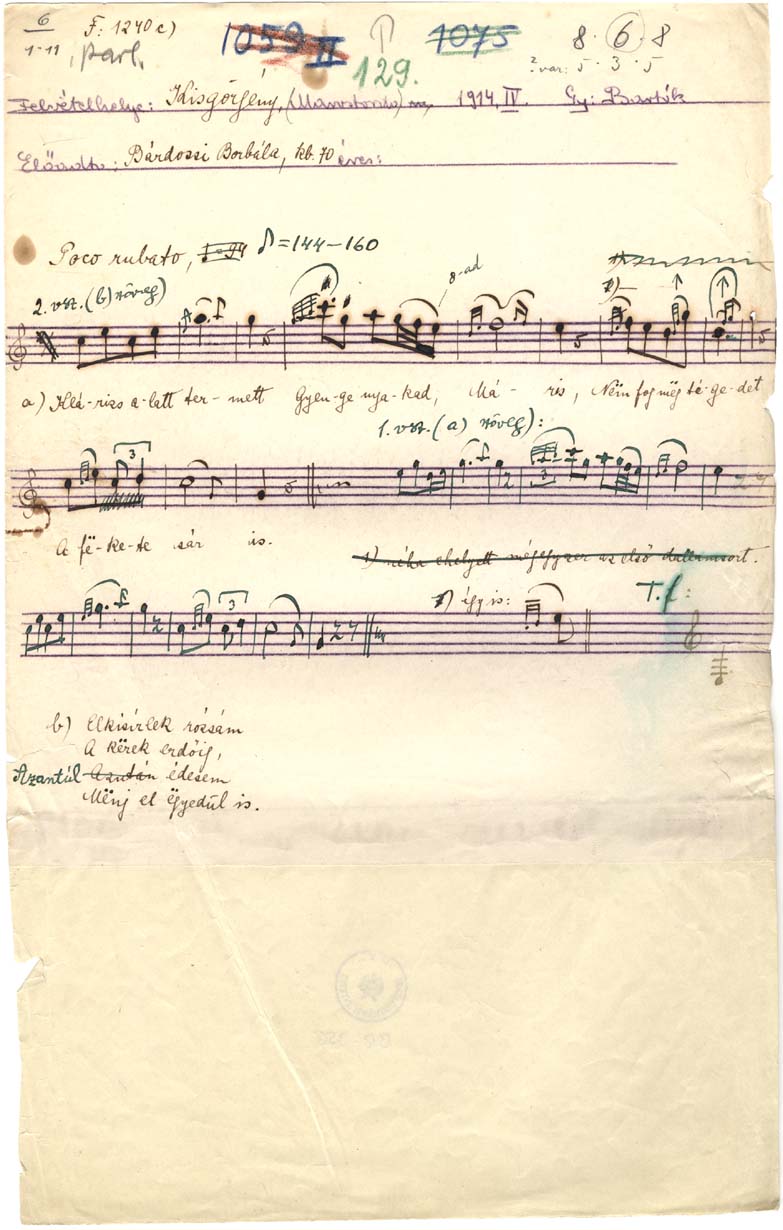 6 F: 1240 c) 1059 II 1075 8 · 6 · 8
1-11 parl. 129. ?var: 5 · 3 · 5
Felvétel helye: Kisgörgény, (Marostorda) m, 1914, IV. Gy: Bartók
Előadta: Bárdossi Borbála, kb. 70 éves:
Poco rubato, ♪=144–160
8-ad
2. vsz. (b) szöveg)
a) Klá-rizs a-latt ter-mett Gyen-ge nya-kad, Má-ris, Nëm fog még té-ge-det
1. vsz. (a) szöveg):
3 3
A fë-ke-te sár is.
1) néha ehelyett mégegyszer az első dallamsort.
3 1) így is: T. f:
b) Elkisírlek rózsám
A kerek erdőig,
Azantúl Azután édesem
Mënj el ëgyedül is.